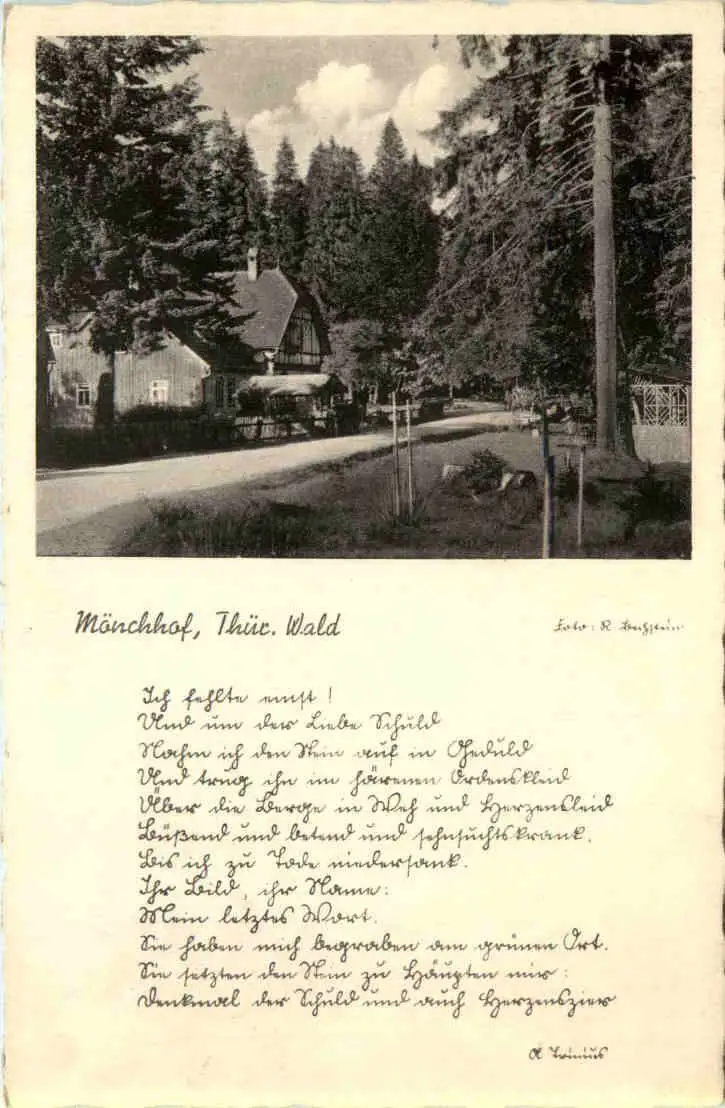 Mönchhof, Thür. Wald
Foto: R. Bechstein
Ich fehlte einst!
Und um der Liebe Schuld
Nahm ich den Stein auf in Geduld
Und trug ihn im härenen Ordenskleid
Über die Berge in Weh und Herzensleid
Büßend und betend und sehnsuchtskrank.
Bis ich zu Tode niedersank.
Ihr Bild, ihr Name:
Mein letztes Wort.
Sie haben mich begraben am grünen Ort.
Sie setzten den Stein zu Häupten mir:
Denkmal der Schuld und auch Herzenszier
A Trinius